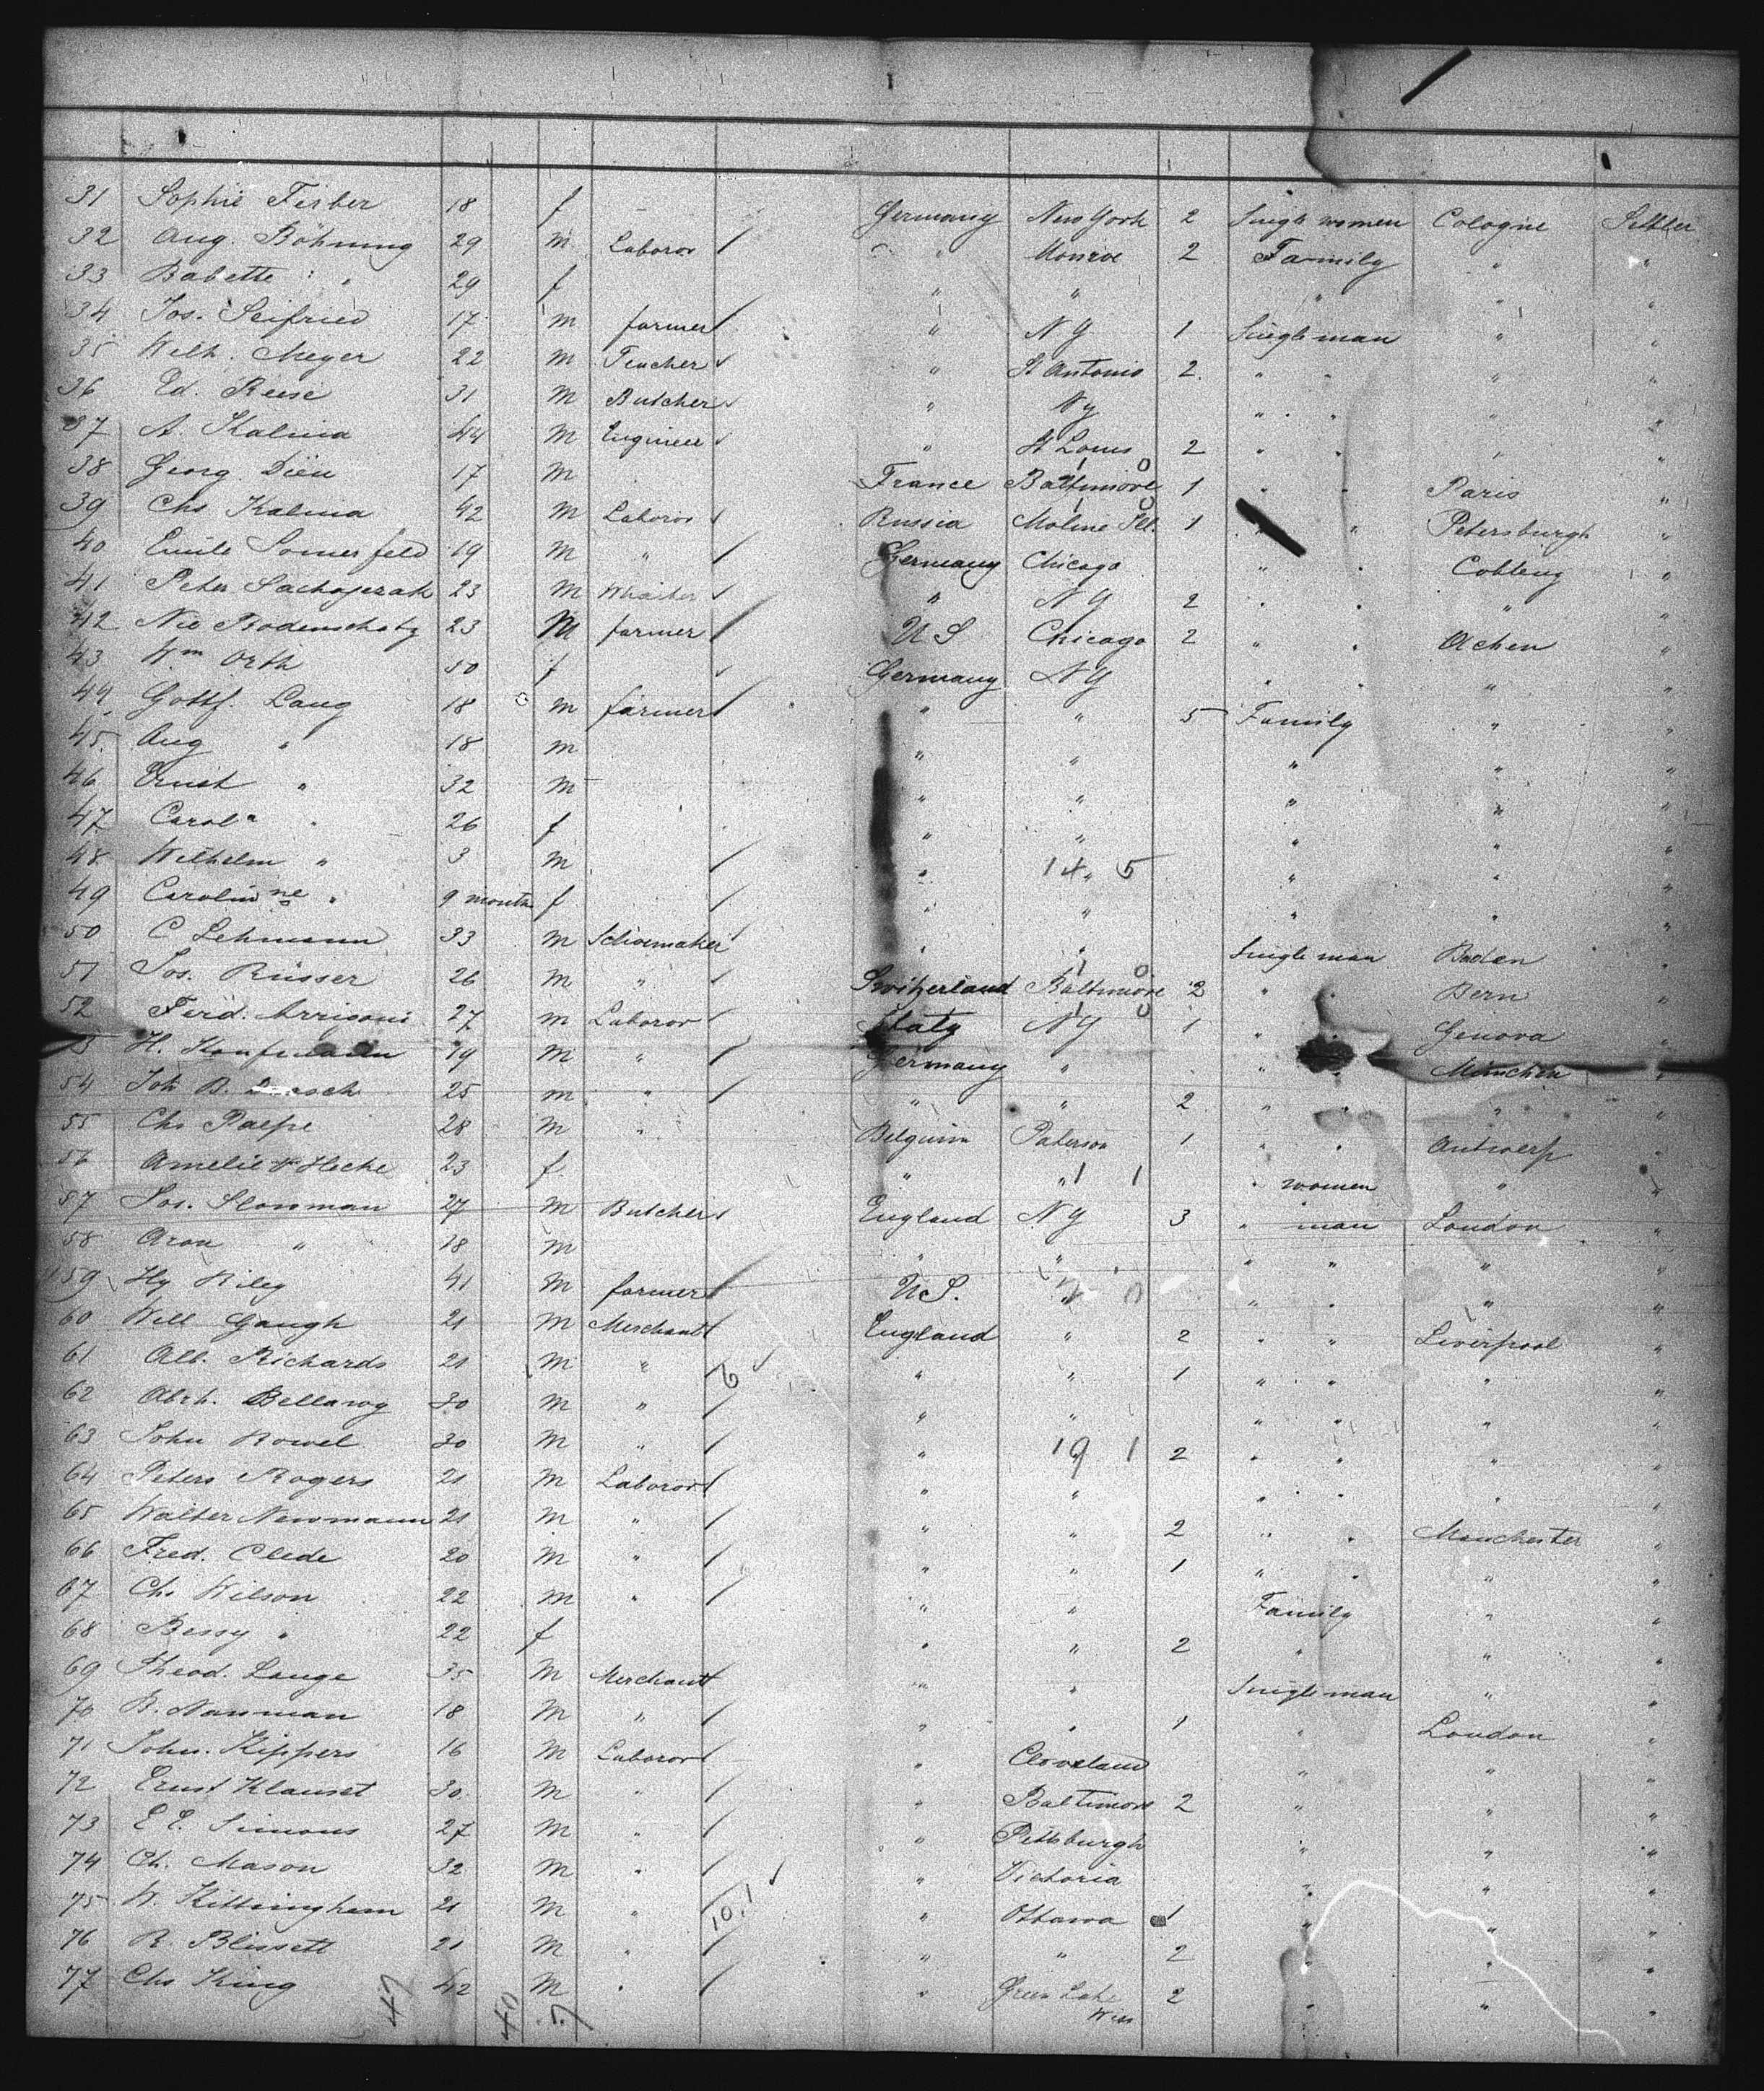 31 Sophie Ferber 18 f Germany New York 2 Single women Cologne Settler
32 Aug. Böhning 29 m Laboror " Monroe 2 Family " "
33 Babette " 29 f " " " " "
34 Jos. Seifried 17 m farmer " NY 1 Single man " "
35 Wilh. Meyer 22 m Teacher " St Antonio 2 " " " "
36 Ed. Reese 31 m Butcher " Ny " " " "
37 A. Kalina 44 m Engineer " St Louis 2 " " " "
38 Georg Dieu 17 m France Baltimore 1 " " Paris "
39 Chs Kalina 42 m Laboror Russia Moline Ill. 1 " " Petersburgh "
40 Emile Somerfeld 19 m " Germany Chicago " " Coblenz "
41 Peter 23 m Whaiter " NY 2 " " " "
42 Nic Bodenschatz 23 m farmer US Chicago 2 " " Achen "
43 Wm Orth 50 f Germany NY " " " "
44 Gottf. Lang 18 m farmer " " 5 Family " "
45 Aug " 18 m " " " " "
46 Ernst " 32 m " " " " "
47 Carola " 26 f " " " " "
48 Wilhelm " 3 m " 14 " 5 " " "
49 Caroline " 9 month f " " " " "
50 C Lehmann 33 m Schoemaker " " Single man Baden "
51 Jos. Rüsser 26 m " Switzerland Baltimore 2 " " Bern "
52 Ferd. Arrisoni 27 m Laboror Italy NY 1 " " Genova "
53 H. Kaufmann 19 m " Germany " " " München "
54 Joh B. 25 m " " " 2 " " " "
55 Chs Paepe 28 m " Belguim Paterson 1 " " Antwerp "
56 Amelie 23 f " " 1 1 " women " "
57 Jos. Slowman 27 m Butcher England NY 3 " man London "
58 Aron " 18 m " " " " " "
59 Hy Riley 41 m farmer US. " " " " "
60 Will Gaugh 21 m Merchant England " 2 " " Liverpool "
61 Alb. Richards 21 m " 6 " " 1 " " " "
62 Abrh. 30 m " " " " " " "
63 John Rowel 30 m " " 19 1 2 " " " "
64 Peters Rogers 21 m Laboror " " " " " "
65 Walter Newmann 21 m " " " 2 " " Manchester "
66 Fred. Clede 20 m " " " 1 " " " "
67 Ch. Wilson 22 m " " " Family " "
68 Bessy " 22 f " " 2 " " "
69 Theod. Lange 35 m Merchant " " Single man " "
70 B. Nauman 18 m " " " 1 " London "
71 John. Kippers 16 m Laboror " Cleveland " " "
72 Ernst Klauset 30 m " " Baltimore 2 " " "
73 E E. Simons 27 m " " Pittsburgh " " "
74 Ch. Mason 32 m " " Victoria " " "
75 W. Kittingham 21 m " 10.1 " Ottawa 1 " " "
76 R. Blissett 21 m " " " 2 " " "
77 Chs King 42 m " " Green Lake 2 " " "
Wis
47 40 7